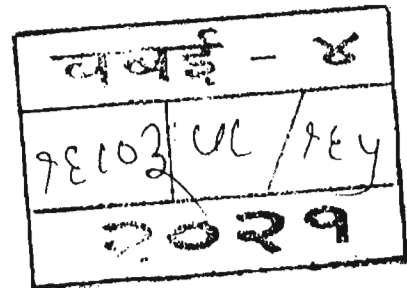 बबई - ४
१६८०३ ५८ / १६५
२०२१